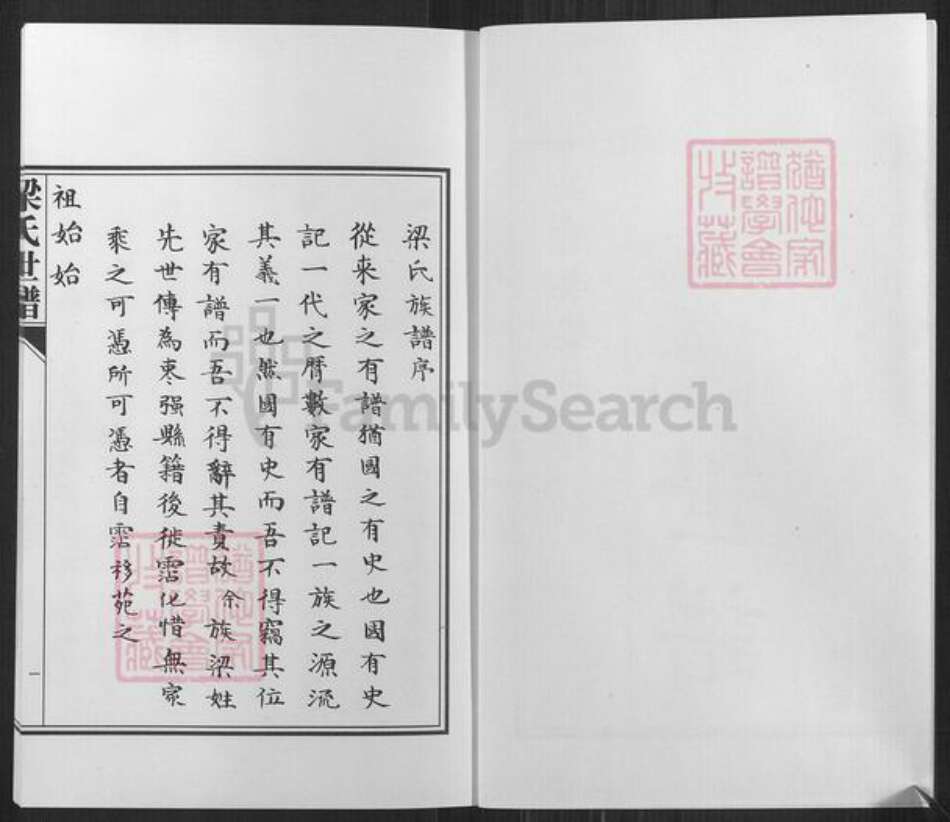 梁氏族譜序
從来家之有譜猶國之有史也國有史
記一代之曆數家有譜記一族之源流
其義一也然國有史而吾不得竊其位
家有譜而吾不得辭其責故余族梁姓
先世傳為枣强縣籍後徙霑化惜無家
乘之可憑所可憑者自霑移苑之
始
始
祖
梁氏世譜
一
猶他家
譜學會
收藏
猶他家
譜學會
收藏
FamilySearch